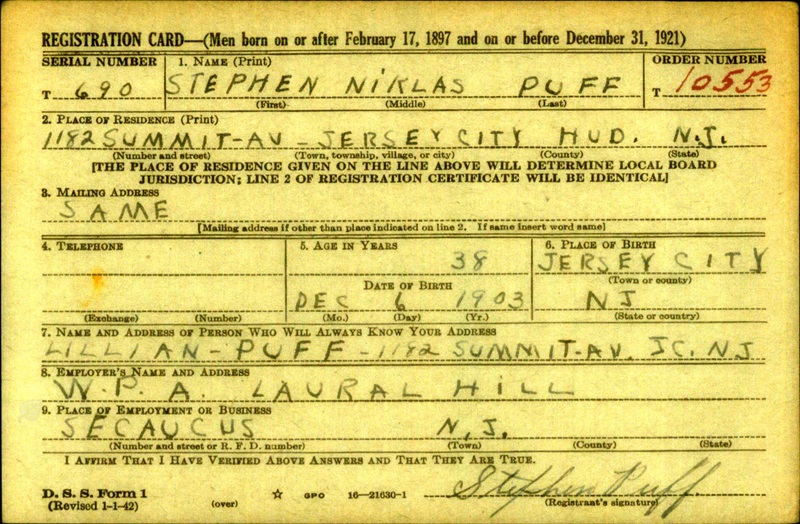 REGISTRATION CARD—(Men born on or after February 17, 1897 and on or before December 31, 1921)
SERIAL NUMBER 1. NAME (Print) ORDER NUMBER
T 690 STEPHEN NIKLAS PUFF T 10553
(First) (Middle) (Last)
2. PLACE OF RESIDENCE (Print)
1182 SUMMIT-AV - JERSEY CITY HUD. N.J.
(Number and street) (Town, township, village, or city) (County) (State)
[THE PLACE OF RESIDENCE GIVEN ON THE LINE ABOVE WILL DETERMINE LOCAL BOARD
JURISDICTION; LINE 2 OF REGISTRATION CERTIFICATE WILL BE IDENTICAL]
3. MAILING ADDRESS
SAME
[Mailing address if other than place indicated on line 2. If same insert word same]
4. TELEPHONE 5. AGE IN YEARS 6. PLACE OF BIRTH
38 JERSEY CITY
(Town or county)
DATE OF BIRTH
DEC 6 1903 NJ
(Exchange) (Number) (Mo.) (Day) (Yr.) (State or country)
7. NAME AND ADDRESS OF PERSON WHO WILL ALWAYS KNOW YOUR ADDRESS
LILLIAN - PUFF - 1182 SUMMIT-AV. JC. NJ
8. EMPLOYER'S NAME AND ADDRESS
W.P.A. LAURAL HILL
9. PLACE OF EMPLOYMENT OR BUSINESS
SECAUCUS N.J.
(Number and street or R. F. D. number) (Town) (County) (State)
I AFFIRM THAT I HAVE VERIFIED ABOVE ANSWERS AND THAT THEY ARE TRUE.
Stephen Puff.
D. S. S. Form 1
(Revised 1-1-42) (over) ☆ GPO 16—21630-1 (Registrant's signature)